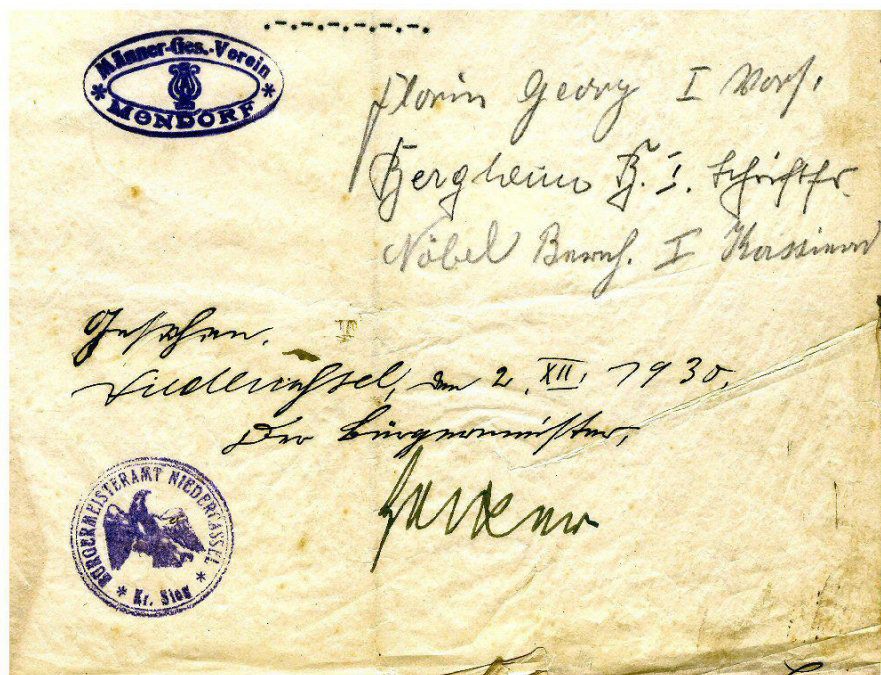 Männer-Ges.-Verein
* MONDORF *
Florin Georg I Vors.
Bergheim B. I. Schriftfr.
Nöbel Bernh. I Kassierer
Gesehen.
den 2. XII. 1930.
Der Bürgermeister,
BÜRGERMEISTERAMT NIEDERCASSEL
* Kr. Sieg *